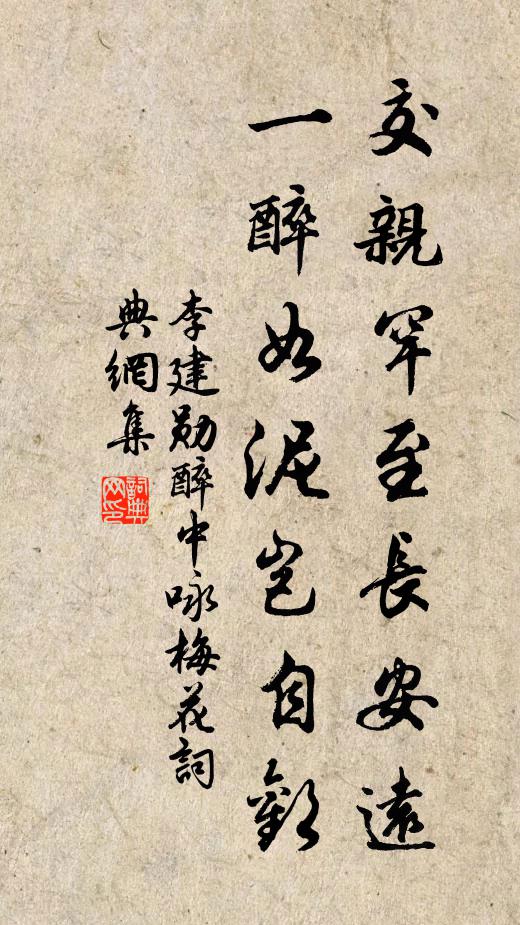 交親罕至長安遠
一醉如泥豈自歡
李建勛醉中咏梅花詞
典網集
詞典
网印